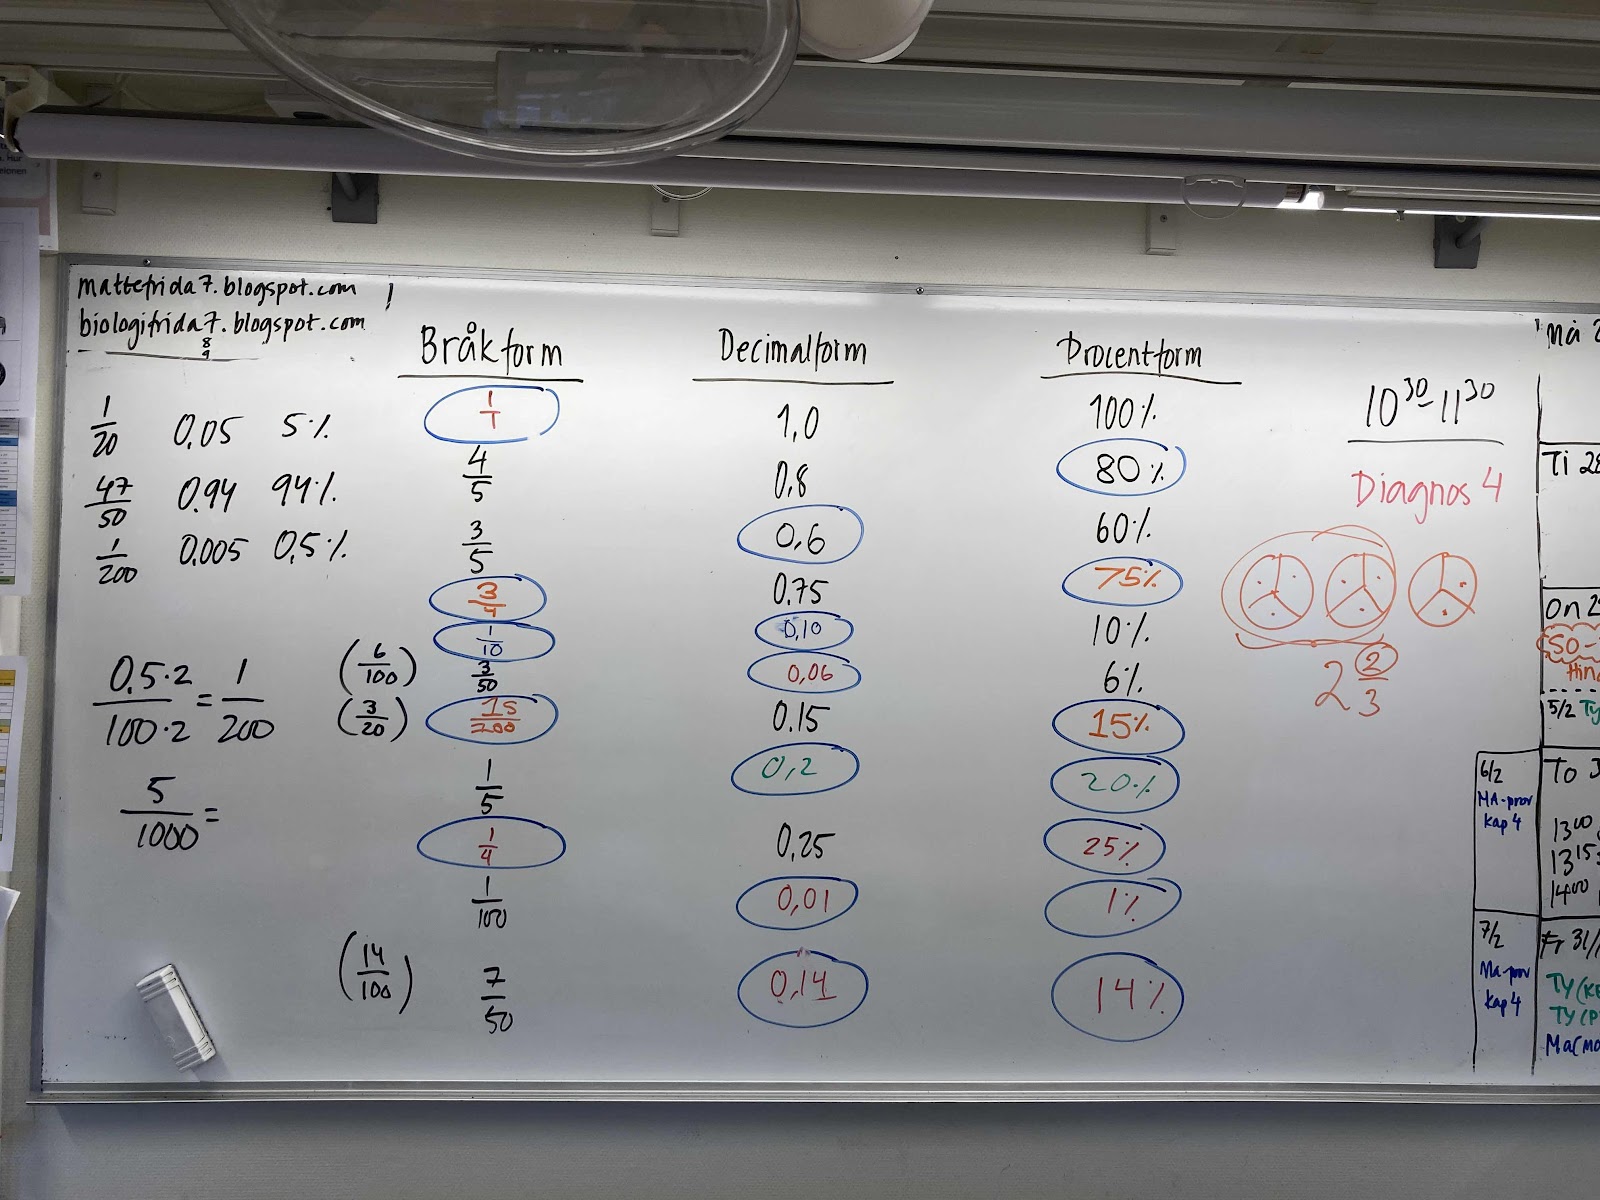 mattefrida7.blogspot.com !
biologifrida7.blogspot.com
8
9
1/20 0,05 5%
47/50 0,94 94%
1/200 0,005 0,5%
0,5·2/100·2 = 1/200
5/1000 =
Bråkform Decimalform Procentform
1/1 1,0 100%
4/5 0,8 80%
3/5 0,6 60%
3/4 0,75 75%
1/10 0,10 10%
(6/100) 3/50 0,06 6%
(3/20) 15/200 0,15 15%
1/5 0,2 20%
1/4 0,25 25%
1/100 0,01 1%
(14/100) 7/50 0,14 14%
10³⁰-11³⁰
Diagnos 4
2 2/3
Må 2
Ti 28
On 2
SO-
Hin
5/2 Ty
6/2
MA-prov
Kap 4
To 3
13⁰⁰
13¹⁵
14⁰⁰
7/2
Ma-prov
Kap 4
Fr 31/
TY (KE
TY (P
Ma (Mo